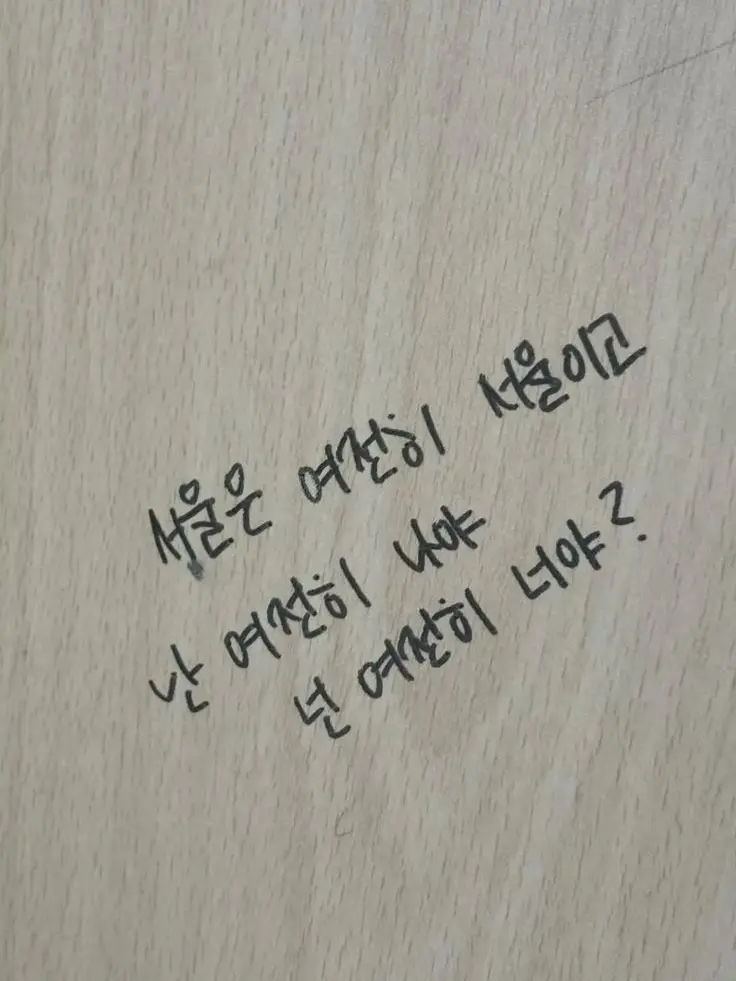 서울은 여전히 서울이고
난 여전히 나야
넌 여전히 너야?